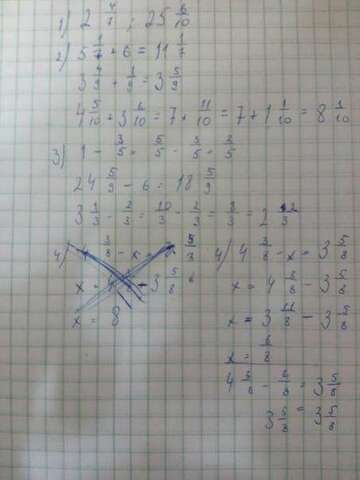 1) 2 4/7 ; 25 6/10
2) 5 1/7 + 6 = 11 1/7
3 4/9 + 1/9 = 3 5/9
4 5/10 + 3 6/10 = 7 + 11/10 = 7 + 1 1/10 = 8 1/10
3) 1 - 3/5 = 5/5 - 3/5 = 2/5
24 5/9 - 6 = 18 5/9
3 1/3 - 2/3 = 10/3 - 2/3 =
4) 4 3/8 - x = 3 5/8
x = 4 3/8 - 3 5/8
x = 3 11/8 - 3 5/8
x = 6/8
4 3/8 - 6/8 = 3 5/8
3 5/8 = 3 5/8